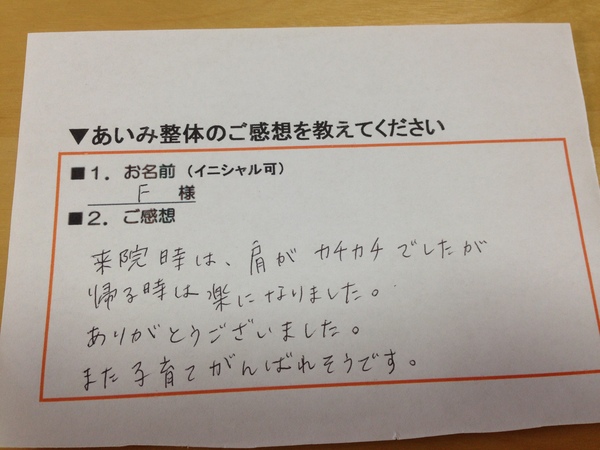 ▼あいみ整体のご感想を教えてください
■１．お名前（イニシャル可）
F 様
■２．ご感想
来院時は、肩がカチカチでしたが
帰る時は楽になりました。
ありがとうございました。
また子育てがんばれそうです。